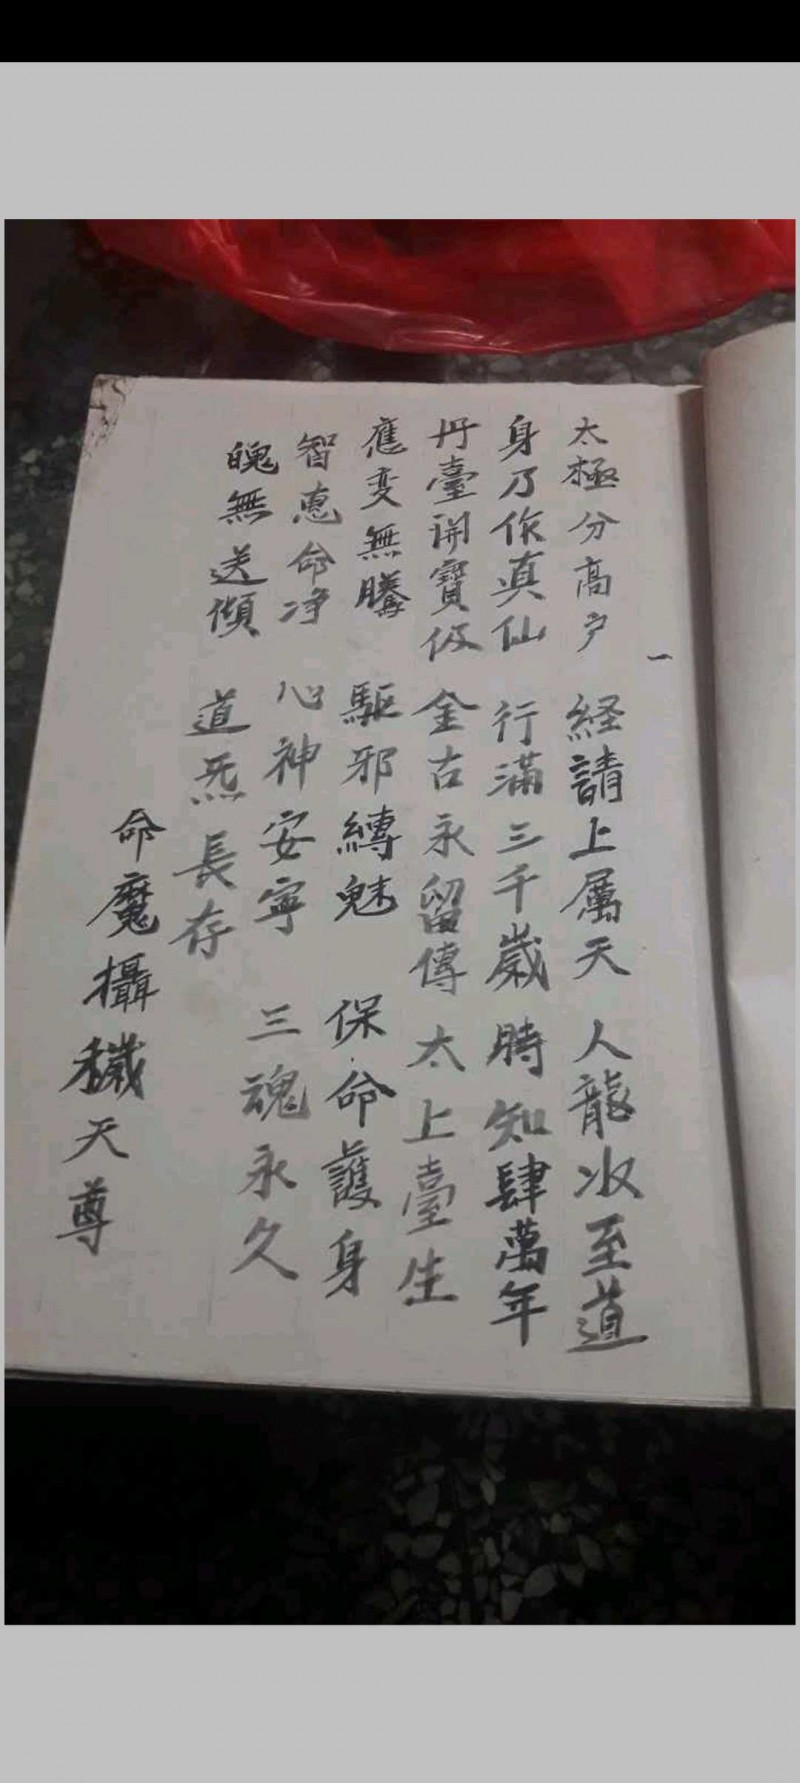 一
太極分高户 経請上属天 人龍氷至道
身乃作真仙 行滿三千歲 時知肆萬年
丹臺開寶伋 金古永留傳 太上臺生
應变無騰 驅邪縛魅 保命護身
智惠命净 心神安寧 三魂永久
魄無送傾 道炁長存
命魔攝穢天尊